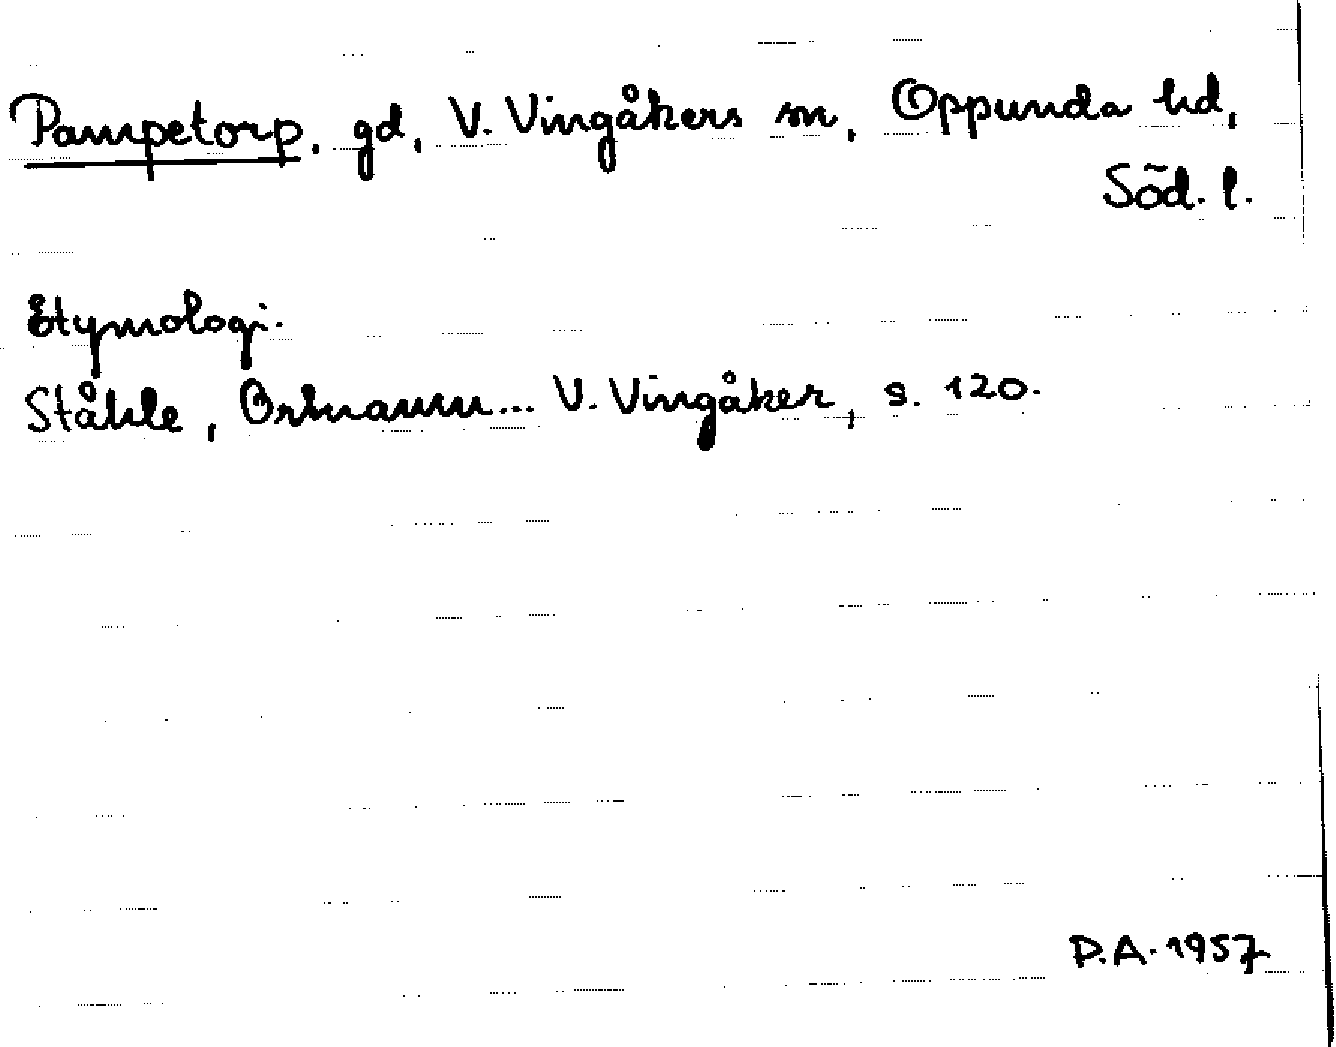 Pampetorp, gd, V. Vingåkers sn, Oppunda hd,
Söd. l.
Etymologi.
Ståhle, Ortnamn... V. Vingåker, s. 120.
P.A. 1957